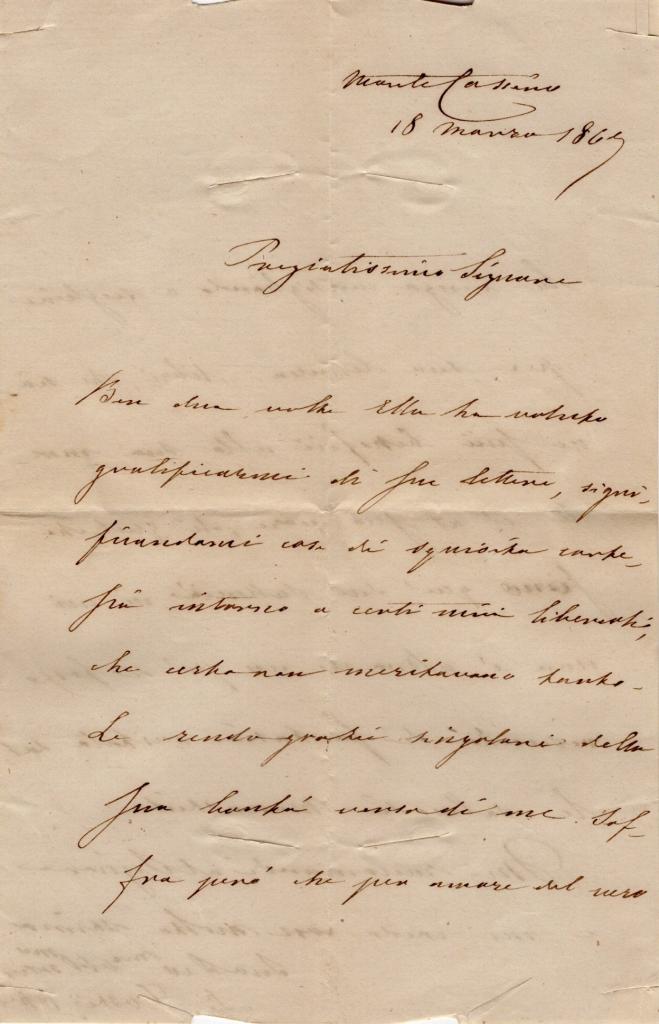 Monte Cassino
18 Marzo 186
Pregiatissimo Signore
Ben due volte Ella ha voluto
gratificarmi di Sue lettere, signi-
ficandomi cose di squisita corte-
sia intorno a certi miei libercoli,
che certo non meritavano tanto.
Le rendo grazie singolari della
Sua bontà verso di me. Sof-
fra però che per amore del vero